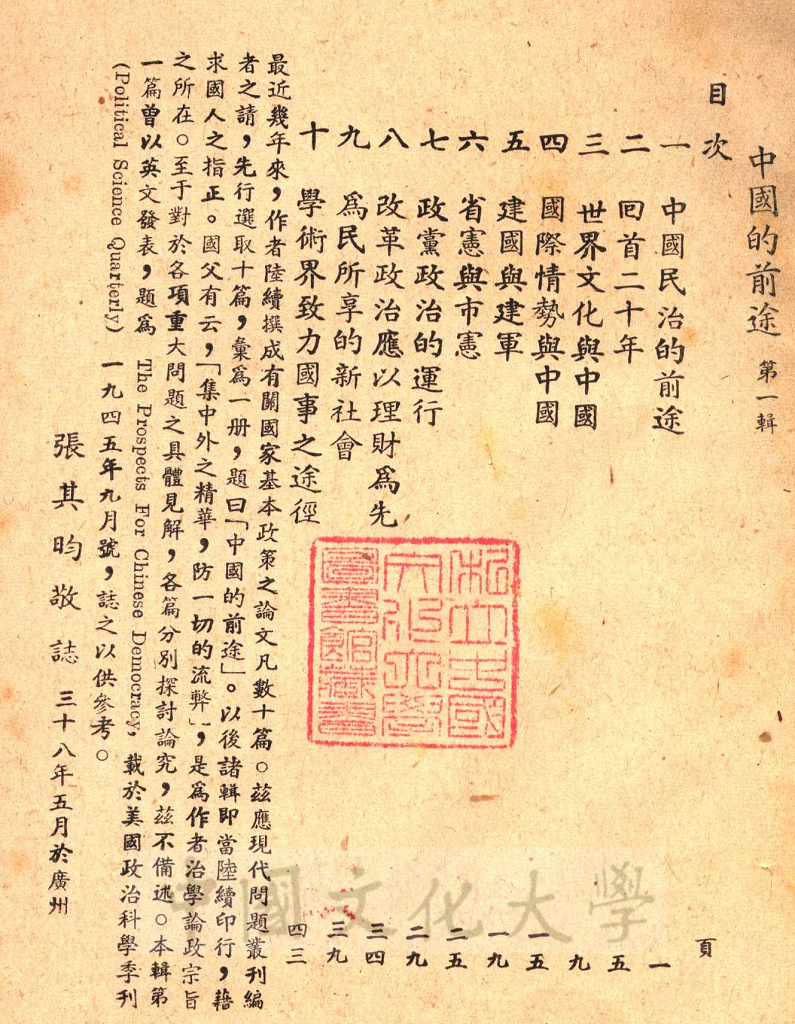 中國的前途 第一輯
目次 頁
一 中國民治的前途 一
二 回首二十年 五
三 世界文化與中國 九
四 國際情勢與中國 一五
五 建國與建軍 一九
六 省憲與市憲 二五
七 政黨政治的運行 二九
八 改革政治應以理財爲先 三四
九 爲民所享的新社會 三九
十 學術界致力國事之途徑 四三
最近幾年來，作者陸續撰成有關國家基本政策之論文凡數十篇。茲應現代問題叢刊編
者之請，先行選取十篇，彙爲一册，題曰「中國的前途」。以後諸輯即當陸續印行，藉
求國人之指正。國父有云，「集中外之精華，防一切的流弊」，是爲作者治學論政宗旨
之所在。至于對於各項重大問題之具體見解，各篇分別探討論究，茲不備述。本輯第
一篇曾以英文發表，題爲 The Prospects For Chinese Democracy, 載於美國政治科學季刊
(Political Science Quarterly) 一九四五年九月號，誌之以供參考。
張其昀敬誌 三十八年五月於廣州
私立中國
文化大學
圖書館藏書
中國文化大學